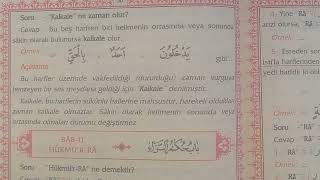 Soru "Kalkale" ne zaman olur?
Cevap Bu beş harften biri kelimenin ortasında veya sonunda
sâkin olarak bulunursa kalkale olur.
Örnek
يَدْخُلُونَ اَحَدٌ بِالْحَقِّ gibi.
Açıklama
Bu harfler üzerinde vakfedildiği (durulduğu) zaman vurguya
benzeyen bir ses meydana geldiği için "Kalkale" denilmiştir.
Kalkale, bu harflerin sükûnlu hallerine mahsustur, harekeli oldukları
zaman kalkale olmazlar. Sâkin olarak kelimenin sonunda veya
ortasında olmaları durumu değiştirmez.
BÂB-11
HÜKMÜ'R RÂ
بَابُ حُكْمِ الرَّاءِ
Soru "Hükmü'r-RÂ" ne demektir?
4- Yine "RÂ"
Örnek
Soru
Cevap "RÂ"
Örnek
5- Esreden sonra